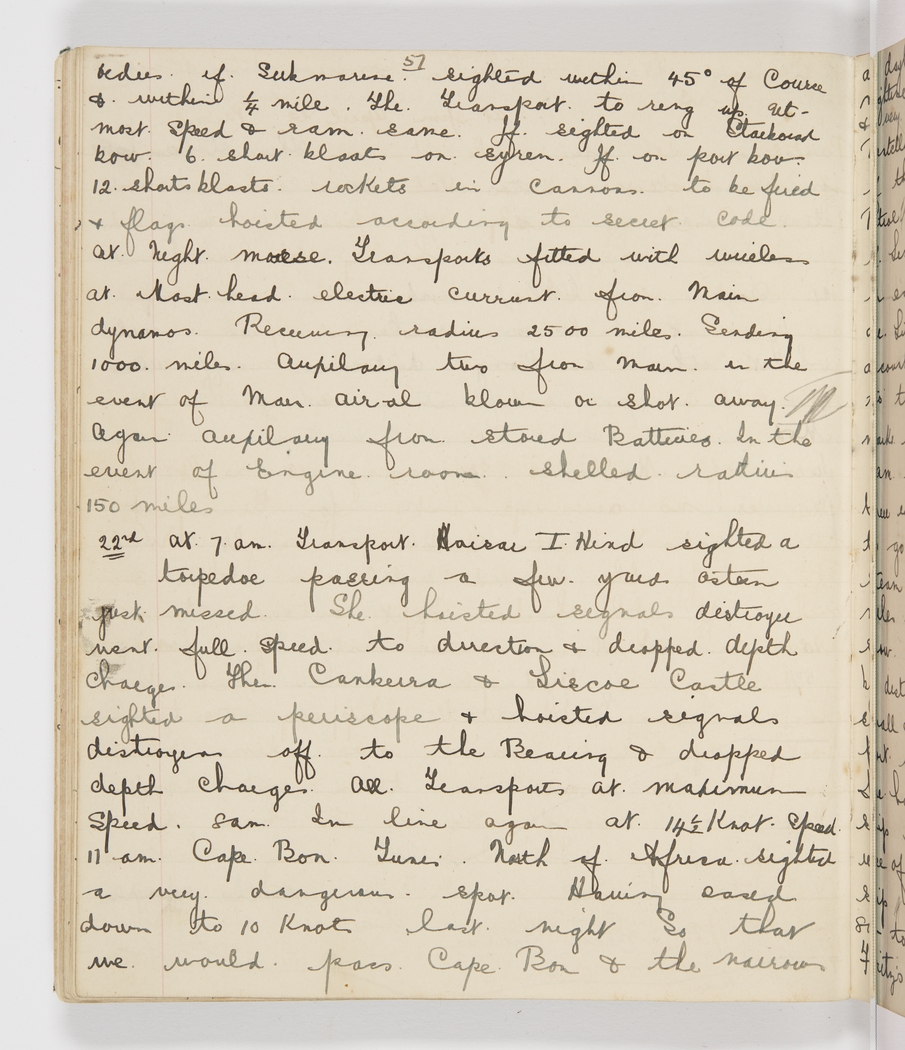 57
bodies. if. Submarine. sighted within 45° of Course
&. within ¼ mile. The. Transport. to reng up. ut-
most. Speed & ram. same. If. sighted on Starboard
bow. 6. short. blasts on. syren. If. on port bow.
12. shorts blasts. rockets in cannons. to be fired
& flags hoisted according to secret. Code.
at. Night. morse. Transports fitted with wireless
at. Mast. head. electric current. from. Main
dynamos. Receiving. radius 2500 miles. Sending
1000. miles. Auxilary two from Main. in the
event of Main. air-al blown or shot. away.
Again auxilary from. stored Batteries. In the
event of Engine. room. shelled. radius
150 miles
22nd at. 7. am. Transport. Kaisar I. Hind sighted a
torpedoe passing a few. yards astern
just. missed. She hoisted signals distroyer
went. full. speed. to direction & dropped. depth
Charges. Then Canberra & Liscoe Castle
sighted a periscope & hoisted signals
distroyers off. to the Bearing & dropped
depth Charges. All. Transports at. maximum
Speed. 8am. In line again at. 14½ Knot. Speed.
11 am. Cape. Bon. Tunis. North of. Africa. sighted
a very. dangerous. spot. Having eased
down to 10 Knots last. night So that
we. would. pass. Cape. Bon & the narrows